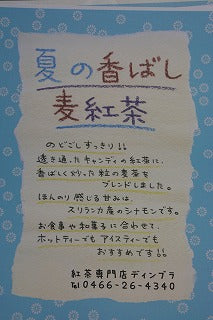 夏の香ばし
麦紅茶
のどごしすっきり!!
透き通ったキャンディの紅茶に、
香ばしく炒った粒の麦茶を
ブレンドしました。
ほんのり感じる甘みは、
スリランカ産のシナモンです。
お食事や和菓子に合わせて、
ホットティーでもアイスティーでも
おすすめです!!
紅茶専門店ディンブラ
Tel 0466-26-4340